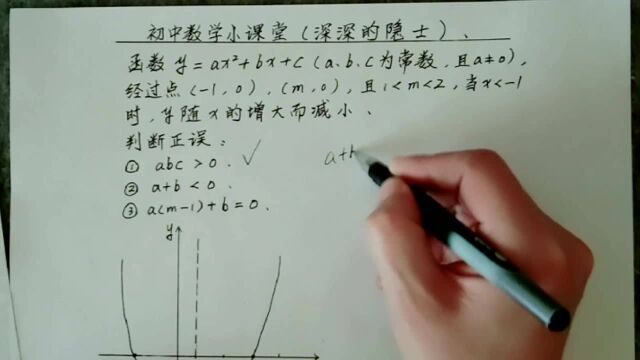 初中数学小课堂(深深的隐士)、
函数 y=ax²+bx+c(a、b、c为常数,且a≠0),
经过点(-1,0),(m,0),且1<m<2,当x<-1
时,y随x的增大而减小、
判断正误:
① abc>0. ✓
② a+b<0.
③ a(m-1)+b=0.
a+b
y